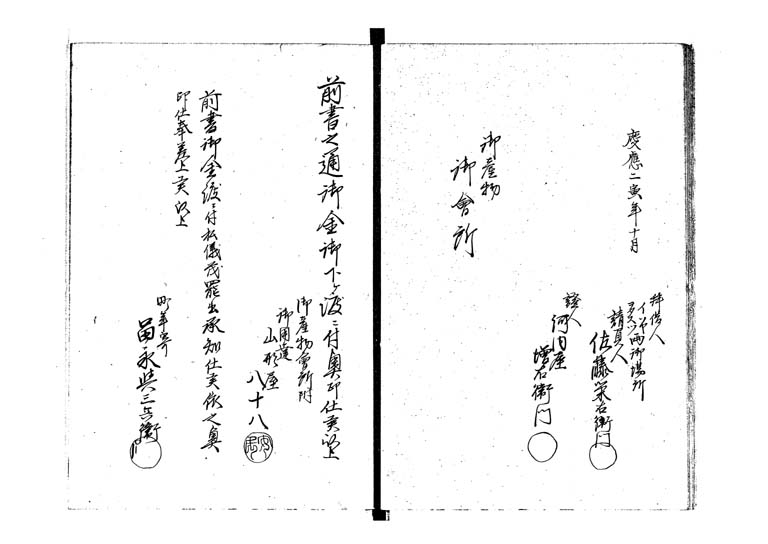 慶應二寅年十月
拝借人
イソヤ両御場所
請負人
佐藤栄右衛門
證人
河内屋
増右衛門
御産物
御會所
前書之通御金御下ケ渡ニ付奥印仕候以上
御産物會所附
御用達
山形屋
八十八
前書御金渡ニ付私儀茂罷出承知仕候依之奥
印仕奉差上候以上
町年寄
留永與三兵衛